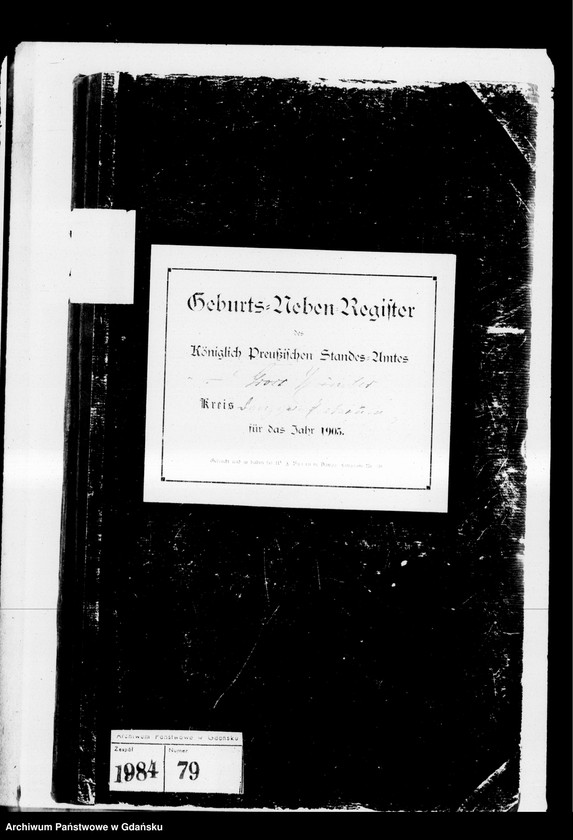 Geburts-Neben-Register
des
Königlich Preußischen Standes-Amtes
Groß
Kreis
für das Jahr 1905.
Archiwum Państwowe w Gdańsku
Zespół
Numer
1984
79
Archiwum Państwowe w Gdańsku